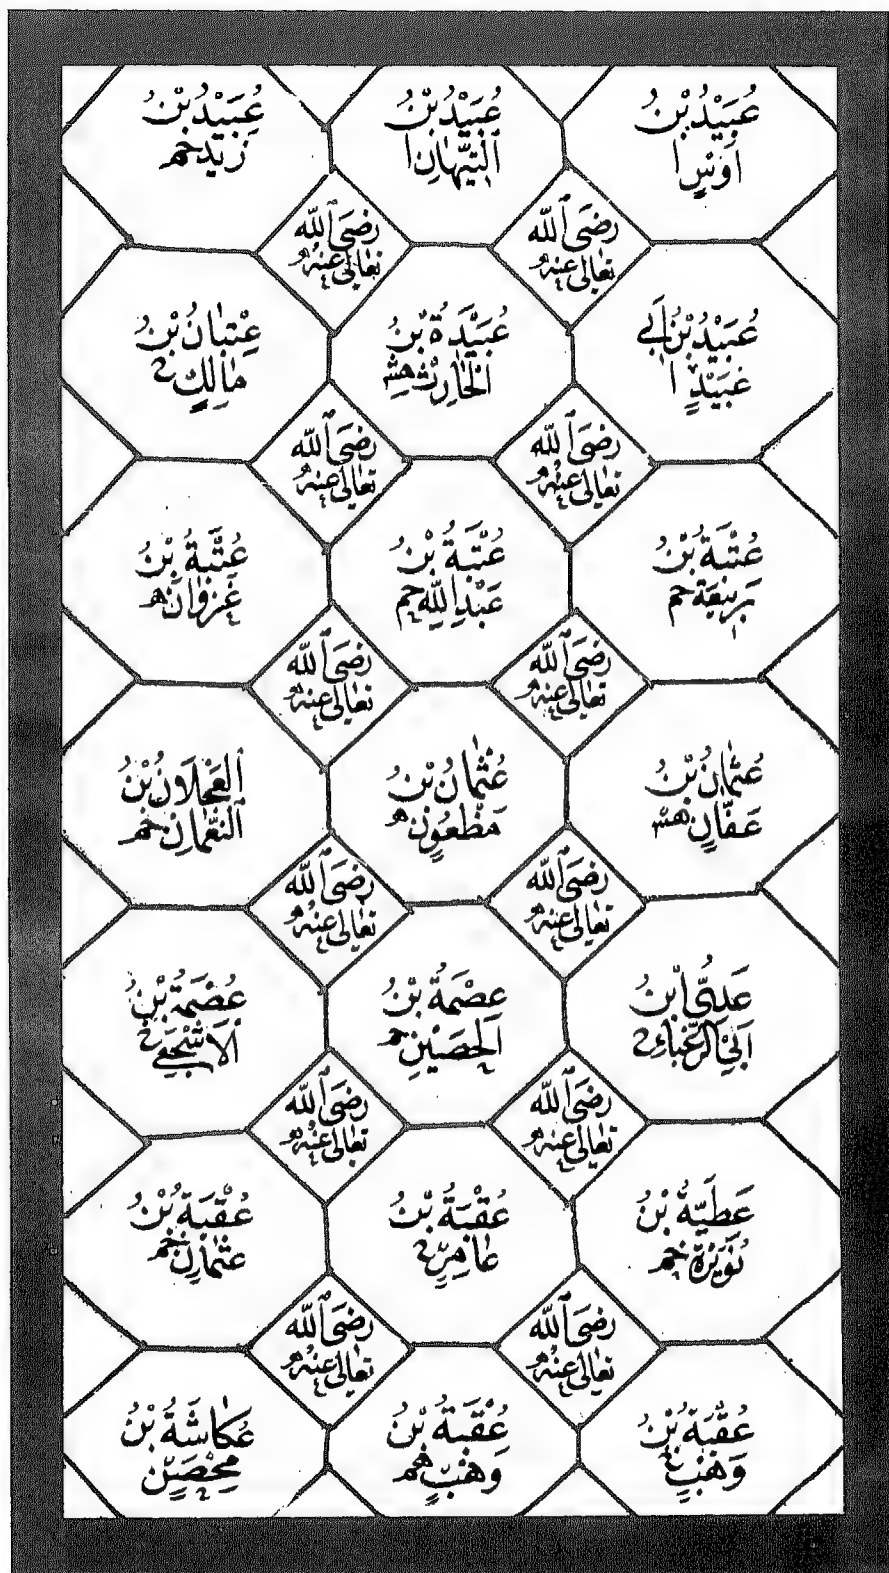 عُبَيْدُ بْنُ
اَوْسٍ ا
عُبَيْدُ بْنُ
ٱلتَّيِّهَانِ ا
عُبَيْدُ بْنُ
زَيْدٍ خم
رَضِىَ ٱللّٰه
تَعَالٰى عَنْهُ و
رَضِىَ ٱللّٰه
تَعَالٰى عَنْهُ و
عُبَيْدُ بْنُ اَبِي
عُبَيْدٍ ا
عُبَيْدَةُ بْنُ
الْحَارِثِ هش
عِتْبَانُ بْنُ
مَالِكٍ
رَضِىَ ٱللّٰه
تَعَالٰى عَنْهُ و
رَضِىَ ٱللّٰه
تَعَالٰى عَنْهُ و
عُتْبَةُ بْنُ
رَبِيْعَةَ خم
عُتْبَةُ بْنُ
عَبْدِ اللّٰهِ خم
عُتْبَةُ بْنُ
غَزْوَانَ
رَضِىَ ٱللّٰه
تَعَالٰى عَنْهُ و
رَضِىَ ٱللّٰه
تَعَالٰى عَنْهُ و
عُثْمَانُ بْنُ
عَفَّانٍ هش
عُثْمَانُ بْنُ
مَظْعُوْنٍ
ٱلْعَجْلَانُ بْنُ
ٱلنُّعْمَانِ خم
رَضِىَ ٱللّٰه
تَعَالٰى عَنْهُ و
رَضِىَ ٱللّٰه
تَعَالٰى عَنْهُ و
عَدِيُّ ابْنُ
اَبِي الزَّغْبَاءِ
عِصْمَةُ بْنُ
الْحُصَيْنِ خم
عُصْمَةُ بْنُ
ٱلْاَشْجَعِي
رَضِىَ ٱللّٰه
تَعَالٰى عَنْهُ و
رَضِىَ ٱللّٰه
تَعَالٰى عَنْهُ و
عَطِيَّةُ بْنُ
نُوَيْرَةَ خم
عُقْبَةُ بْنُ
عَامِرٍ
عُقْبَةُ بْنُ
عُثْمَانَ خم
رَضِىَ ٱللّٰه
تَعَالٰى عَنْهُ و
رَضِىَ ٱللّٰه
تَعَالٰى عَنْهُ و
عُقْبَةُ بْنُ
وَهْبٍ
عُقْبَةُ بْنُ
وَهْبٍ
عُكَاشَةُ بْنُ
مِحْصَنٍ